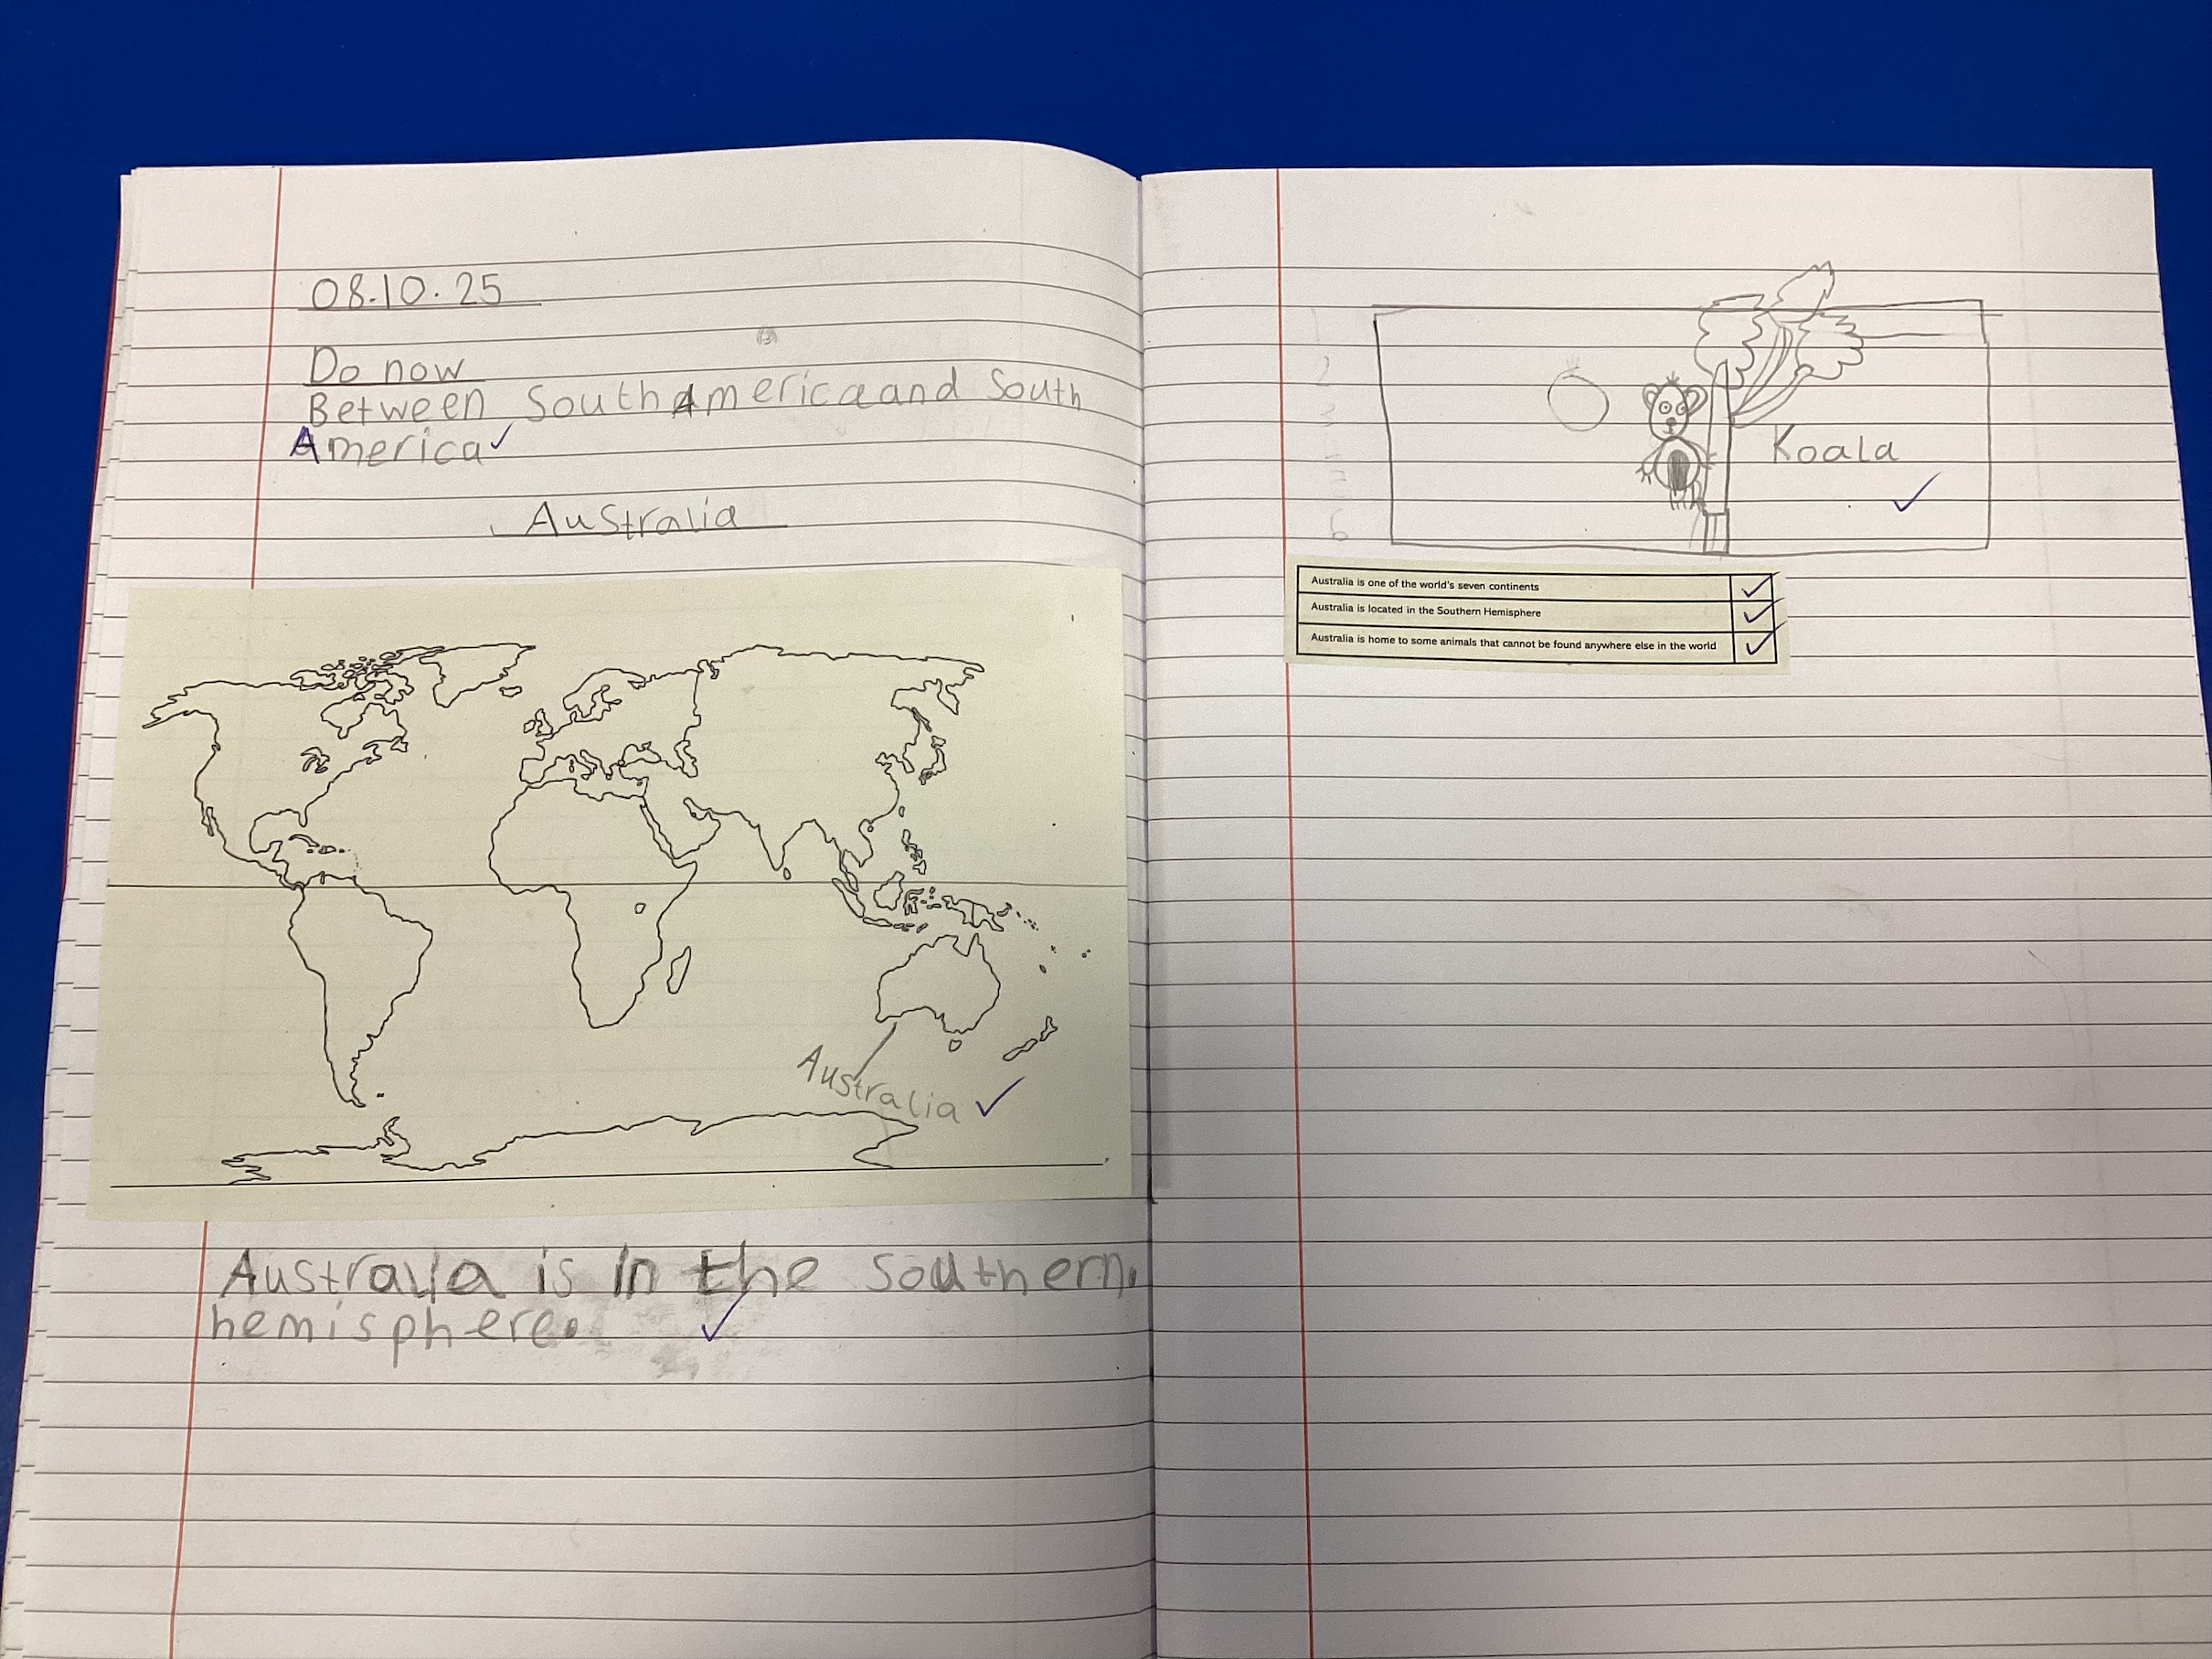 08.10.25
Do now
Between South America and South
America
Australia
Australia
Australia is in the southern
hemisphere.
2
3
6
Koala
Australia is one of the world's seven continents
Australia is located in the Southern Hemisphere
Australia is home to some animals that cannot be found anywhere else in the world